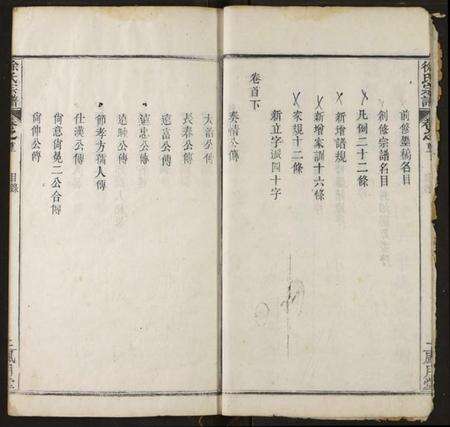 徐氏宗譜
前修墨稿名目
創修宗譜名目
凡例二十二條
新增譜規
新增家訓十六條
家規十二條
新立字派四十字
卷首下
奏請公傳
大浩公傳
長泰公傳
遠富公傳
遠忠公傳
遠時公傳
節孝方孺人傳
仕漢公傳
尙意尙冕二公合傳
尙伸公傳
徐氏宗譜
目錄